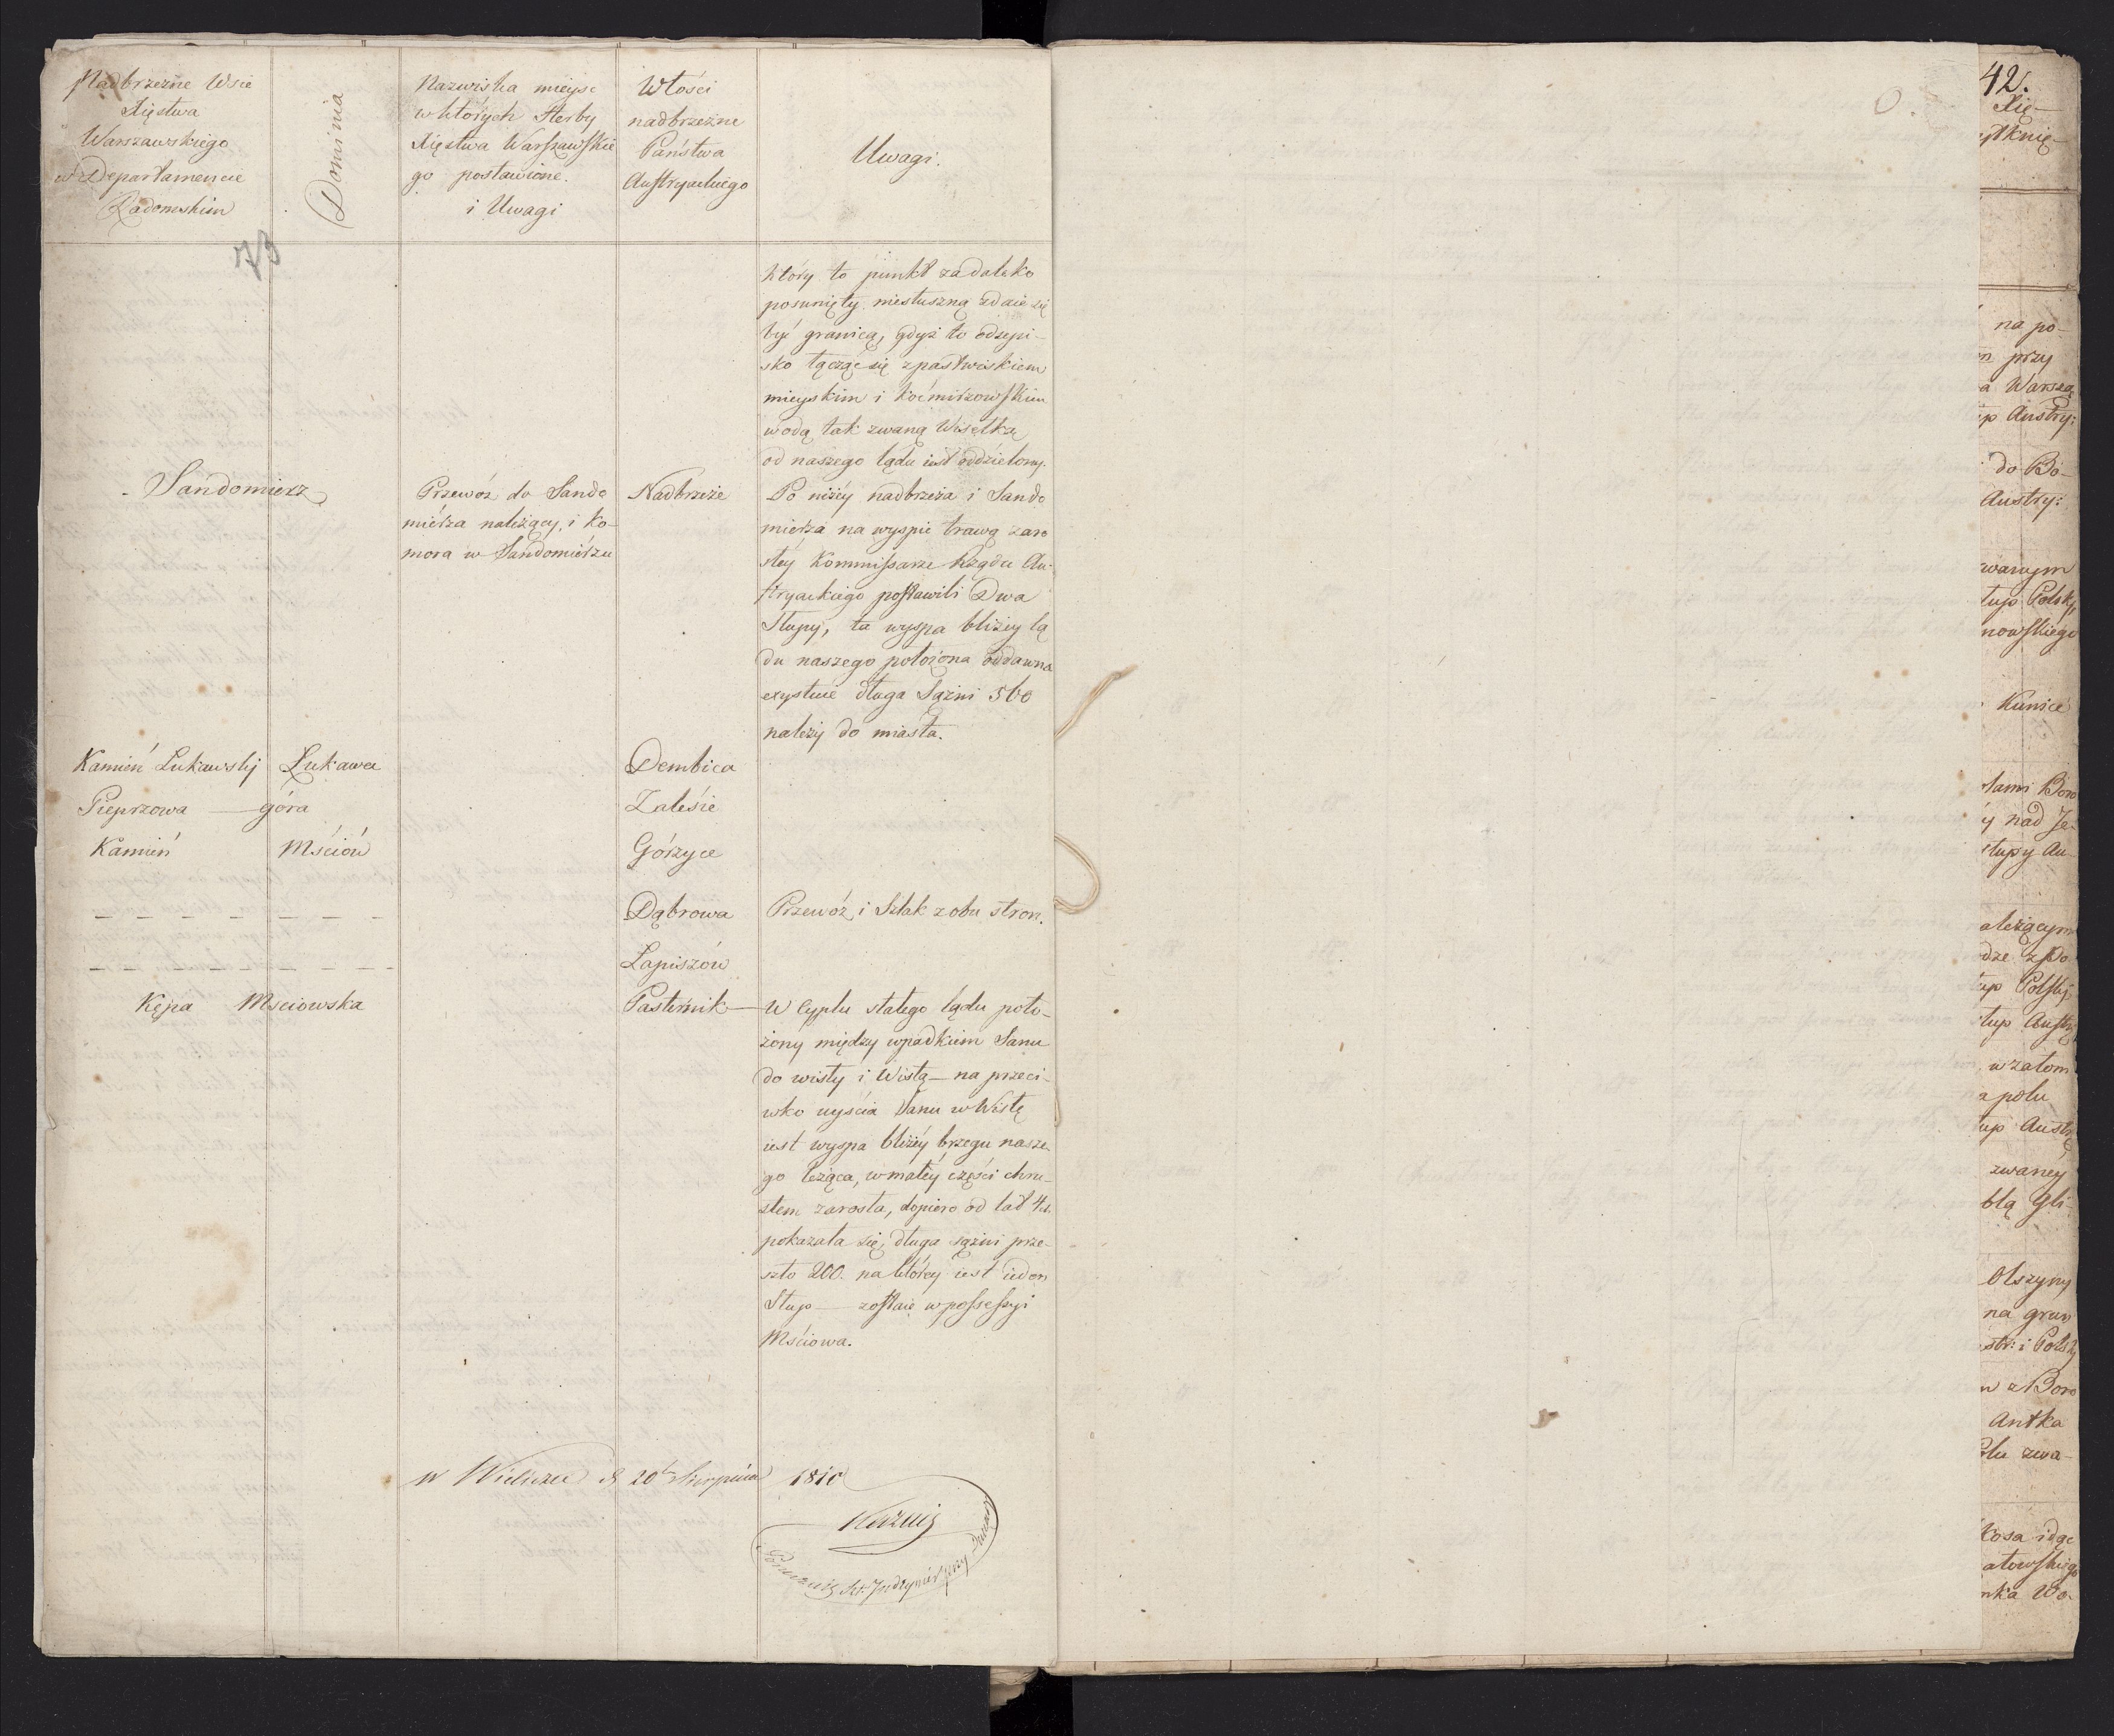 Nadbrzeżne Wsie
Xięstwa
Warszawskiego
w Departamencie
Radomskim
Dominia
Nazwiska mieysc
w których Herby
Xięstwa Warszawskie
go postawione.
i Uwagi
Włości
nadbrzeżne
Państwa
Austryackiego
Uwagi.
który to punkt zadaleko
posunięty niesłuszną zdaie się
być granicą, gdyż to odsypi-
sko łączące się z pastwiskiem
mieyskim i Koćmirzowskim
wodą tak zwaną Wisełką
od naszego lądu iest oddzielony.
Sandomierz
Przewóz do Sando
miérza należący, i Ko-
mora w Sandomiérzu
Nadbrzeże
Po niżéy nadbrzeża i Sando
mierza na wyspie trawą zaro
słéy Kommissarze Rządu Au-
stryackiego postawili Dwa
Słupy, ta wyspa bliżey lą
du naszego położona oddawna
exystuie długa Sążni 560
należy do miasta.
Kamień Łukawsky Łukawa
Dembica
Pieprzowa — góra
Zaleśie
Kamień Mściów
Górzyce
Dąbrowa
Przewóz i Szlak z obu stron.
Łapiszów
Kępa Msciowska
Pasternik —
W Cyplu stałego lądu poło-
żony między wpadkiem Sanu
do wisły i Wisłą — na przeci-
wko uyścia Sanu w Wisłę
iest wyspa bliżéy brzegu nasze-
go leżąca, w małéy części chru-
stem zarosła, dopiero od lat 4ch
pokazała się, długa sążni prze-
szło 200. na któréy iest ieden
Słup — zostaie w possessyi
Mściowa.
20 Sierpnia 1810
42.
Xię-
na po-
przy
a Warsza
Austry:
do Bo-
Austry:
zwanym
Polsky
nowskiego
Kunice
łami Boro
y nad Je-
słupy Au-
ależącym
dze z Po
Polsky
w załom
a polu
zwaney
błą Gli-
Olszyny
na grun
str: i Polsky
w z Boro
Antka
Kosa idąc
atowskiego
nka Wo-